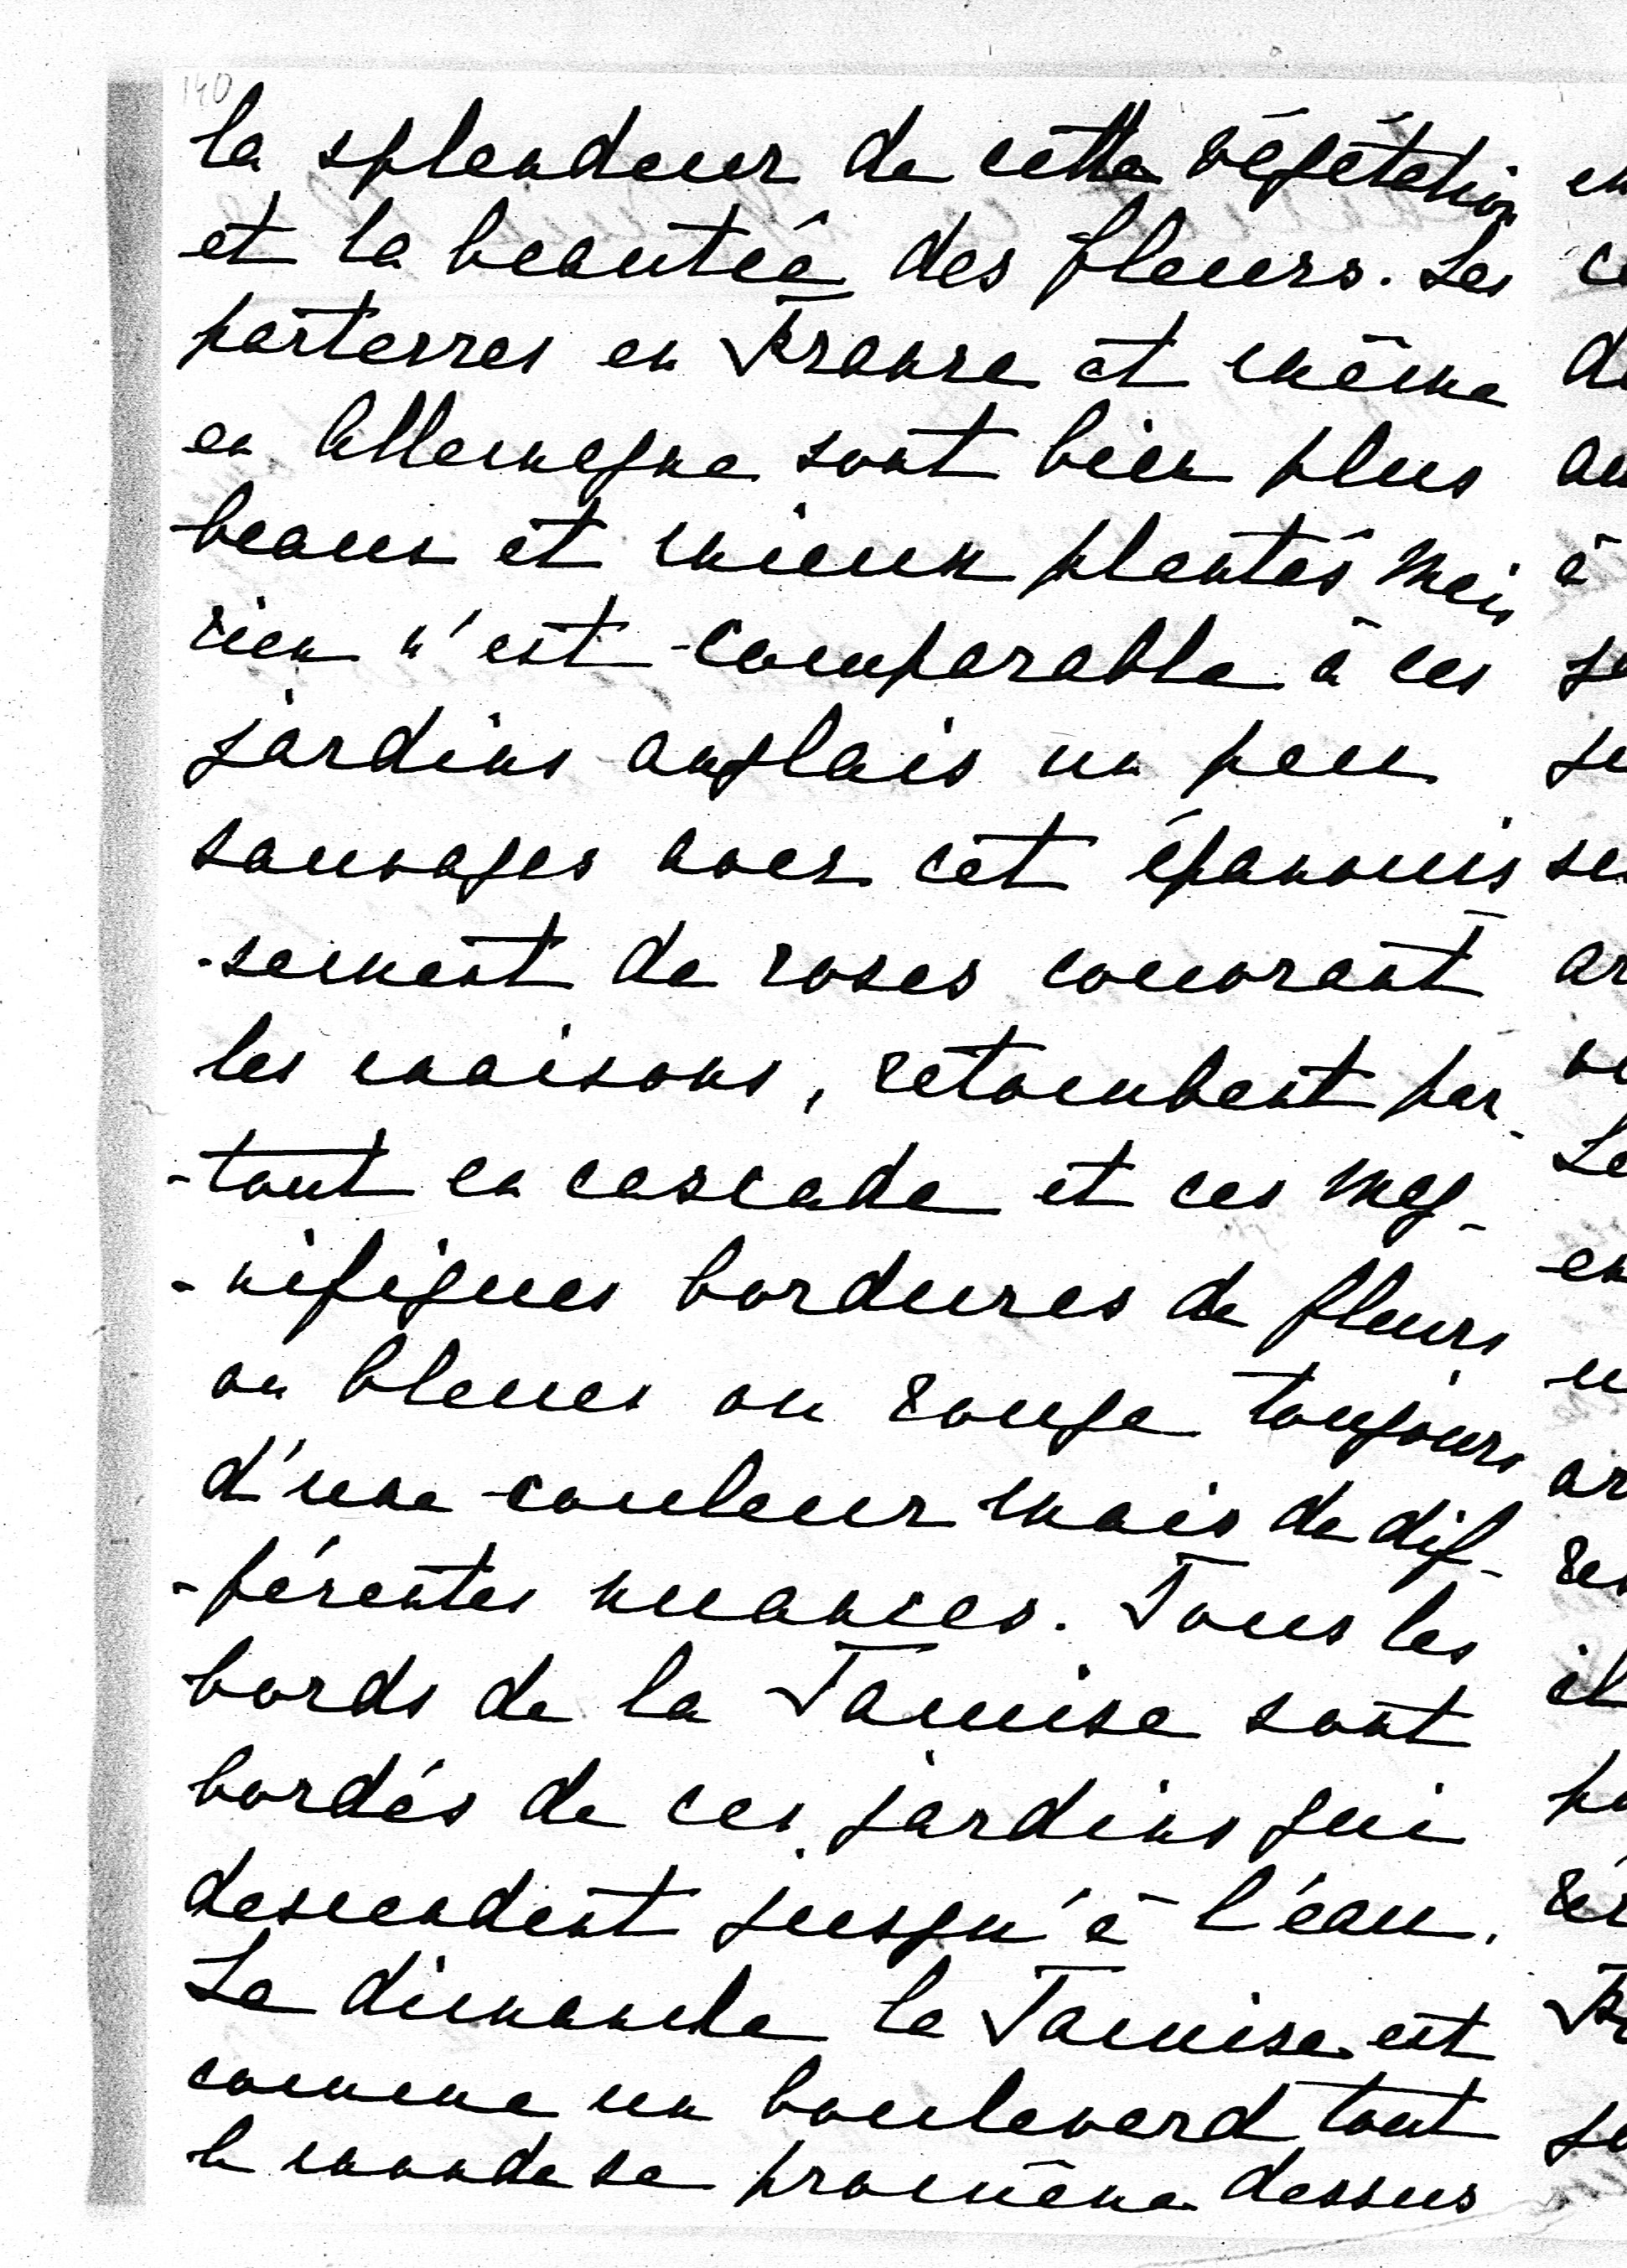 140
la splendeur de cette végétation
et la beautée des fleurs. Les
parterres en France et même
en Allemagne sont bien plus
beaux et mieux plantés mais
rien n'est comparable à ces
jardins anglais un peu
sauvages avec cet épanouis
-sement de roses couvrant
les maisons, retombent par-
-tout en cascade et ces mag-
-nifiques bordures de fleurs
ou bleues ou rouge toujours
d'une couleur mais de dif-
-férentes nuances. Tous les
bords de la Tamise sont
bordés de ces jardins qui
descendent jusqu'à l'eau.
Le dimanche la Tamise est
comme un boulevard tout
le monde se promène dessus